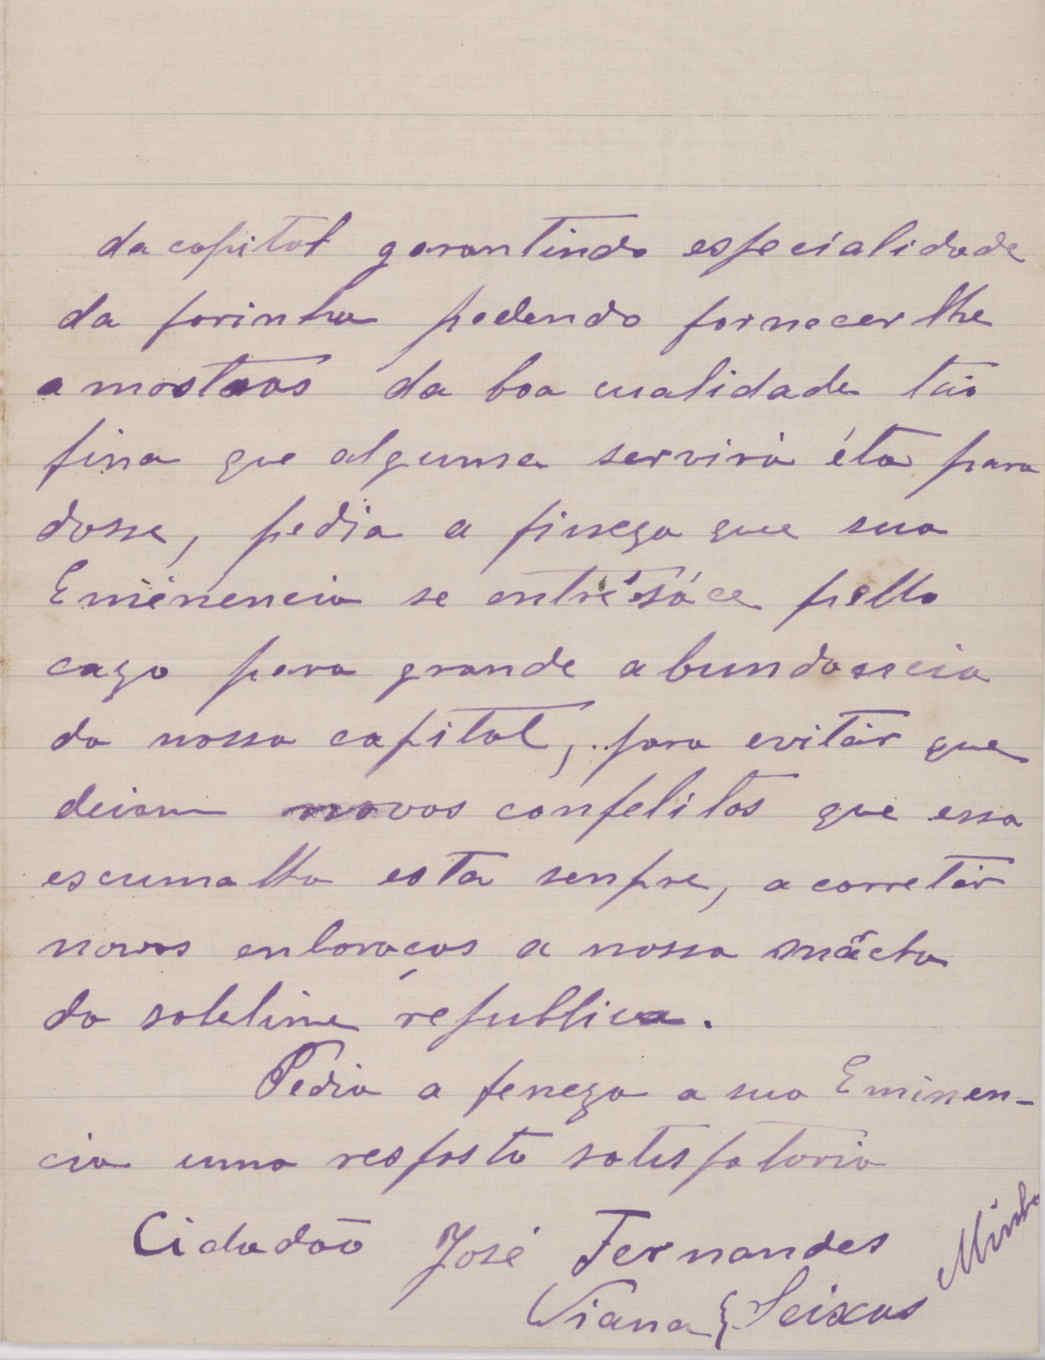 da capital garantindo especialidade
da farinha podendo fornecer lhe
amostras da boa cualidade tão
fina que alguma servirá éta para
dosse, pedia a finega que sua
Eminencia se entresáce pello
cazo para grande abundancia
da nossa capital, para evitár que
deiam novos confelitos que essa
escumalha esta senpre, a corretár
novos enbaraços a nossa
da sobeline républica.
Pedia a fenega a sua Eminen-
cia uma resposta satisfatoria
Cidadão José Fernandes
Viana Seixas
Minho